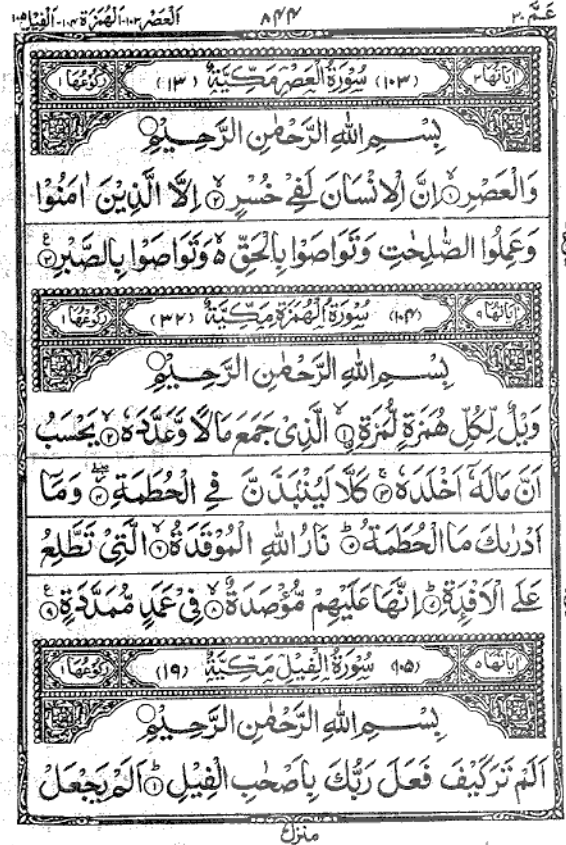 عَمَّ ٣٠ ٨٤٤ اَلْعَصْر ١٠٣-اَلْهُمَزَة ١٠٤-اَلْفِيْل ١٠٥
اٰيَاتُهَا ٣ (١٠٣) سُوْرَةُ الْعَصْرِ مَكِّيَّةٌ (١٣) رُكُوْعُهَا ١
بِسْــمِ اللهِ الرَّحْمٰنِ الرَّحِــيْمِ
وَالْعَصْرِ ۙ‏﴿۱﴾ اِنَّ الْاِنْسَانَ لَفِيْ خُسْرٍ ۙ‏﴿۲﴾ اِلَّا الَّذِيْنَ اٰمَنُوْا
وَعَمِلُوا الصّٰلِحٰتِ وَتَوَاصَوْا بِالْحَقِّ ۙ۬ وَتَوَاصَوْا بِالصَّبْرِ ﴿۳﴾ ع
اٰيَاتُهَا ٩ (١٠٤) سُوْرَةُ الْهُمَزَةِ مَكِّيَّةٌ (٣٢) رُكُوْعُهَا ١
بِسْــمِ اللهِ الرَّحْمٰنِ الرَّحِــيْمِ
وَيْلٌ لِّكُلِّ هُمَزَةٍ لُّمَزَةٍ ۙ‏﴿۱﴾ الَّذِيْ جَمَعَ مَالًا وَّعَدَّدَهٗ ۙ‏﴿۲﴾ يَحْسَبُ
اَنَّ مَالَهٗٓ اَخْلَدَهٗ ۚ‏﴿۳﴾ كَلَّا لَيُنْۢبَذَنَّ فِي الْحُطَمَةِ ۖ‏﴿۴﴾ وَمَآ
اَدْرٰىكَ مَا الْحُطَمَةُ ؕ‏﴿۵﴾ نَارُ اللهِ الْمُوْقَدَةُ ۙ‏﴿۶﴾ الَّتِيْ تَطَّلِعُ
عَلَى الْاَفْـِٕدَةِ ؕ‏﴿۷﴾ اِنَّهَا عَلَيْهِمْ مُّؤْصَدَةٌ ۙ‏﴿۸﴾ فِيْ عَمَدٍ مُّمَدَّدَةٍ ﴿۹﴾ ع
اٰيَاتُهَا ٥ (١٠٥) سُوْرَةُ الْفِيْلِ مَكِّيَّةٌ (١٩) رُكُوْعُهَا ١
بِسْــمِ اللهِ الرَّحْمٰنِ الرَّحِــيْمِ
اَلَمْ تَرَ كَيْفَ فَعَلَ رَبُّكَ بِاَصْحٰبِ الْفِيْلِ ؕ‏﴿۱﴾ اَلَمْ يَجْعَلْ
منزل